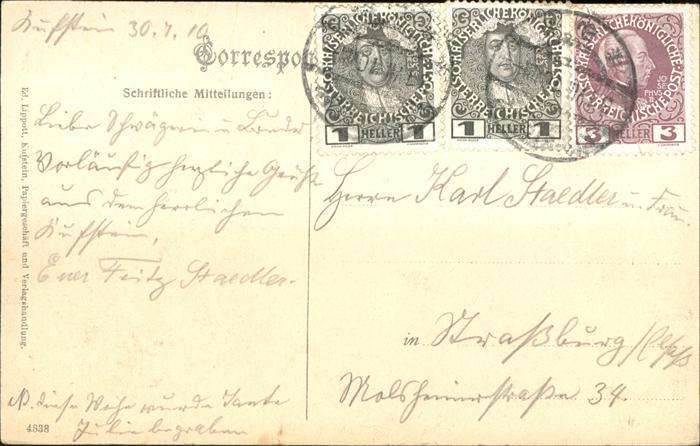 Kufstein 30.7.10
Correspon
Schriftliche Mitteilungen:
Liebe Schwägerin u. Bruder
Vorläufig herzliche Grüße
aus dem herrlichen
Kufstein,
Euer Fritz Staedler.
NB. diese Woche wurde Tante
Julie begraben
4838
Ed. Lippott, Kufstein, Papiergeschäft und Verlagshandlung.
KAISERLICHE KÖNIGLICHE
ÖSTERREICHISCHE POST
1 HELLER 1
KAISERLICHE KÖNIGLICHE
ÖSTERREICHISCHE POST
1 HELLER 1
KAISERLICHE KÖNIGLICHE
ÖSTERREICHISCHE POST
3 HELLER 3
Herrn Karl Staedler u. Frau.
in Straßburg /Elsaß
Molsheimerstraße 34.